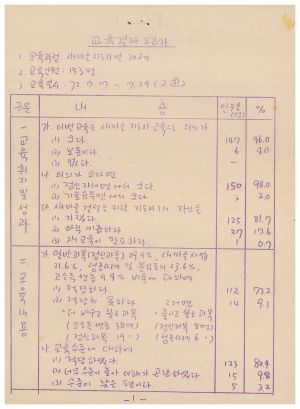 교육결과 평가
1. 교육과정: 새마을지도자반 제2기
2. 교육인원: 153명
3. 교육일시: 72. 7. 17 ~ 7. 29 (2週)
구분 내 용 인원수(명) %
一. 교육취지 및 성과
가. 이번 교육은 새마을 지도자 교육으로 의의가
(1) 크다. 147 96.0
(2) 보통이다. 6 4.0
(3) 없다. —
나. 의의가 크다면
(1) 정신자세면에서 크다. 150 98.0
(2) 기술습득면에서 크다. 3 2.0
다. 새마을 건설을 위한 지도자로서 자신을
(1) 가졌다. 125 81.7
(2) 아직 미흡하다 27 17.6
(3) 재교육이 필요하다 1 0.7
二. 교육내용
가. 일반과목(정신과목) 29.9%, 새마을사업
21.6%, 성공사례 및 분임토의 43.6%,
고소득 영농 4.9% 비율에 대하여
(1) 적당하다. 112 73.2
(2) 적당치 못하다. 14 9.1
더 배우고 싶은 과목 줄이고 싶은 과목
(고소득 영농 38명) (정신과목 8명)
(정신과목 19 〃) (성공사례 6 〃)
나. 교육수준에 대하여
(1) 적당하였다. 123 80.4
(2) 너무 수준이 높아 이해가 곤란하였다. 15 9.8
(3) 수준이 낮은 편이다. 5 3.2
-1-